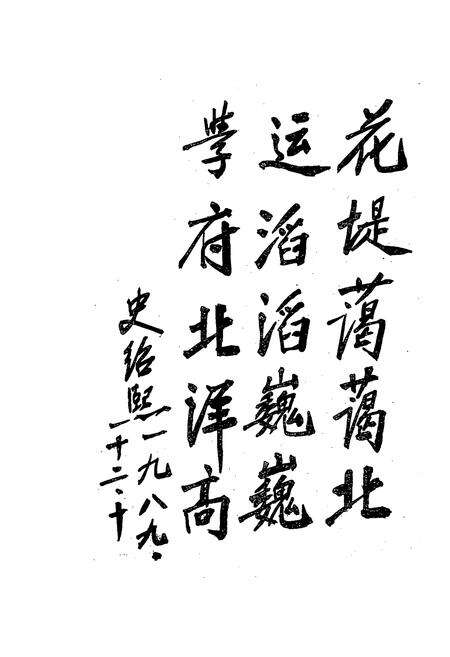 花堤蔼蔼北
运滔滔巍巍
学府北洋高
史绍熙一九八九.
十二、十